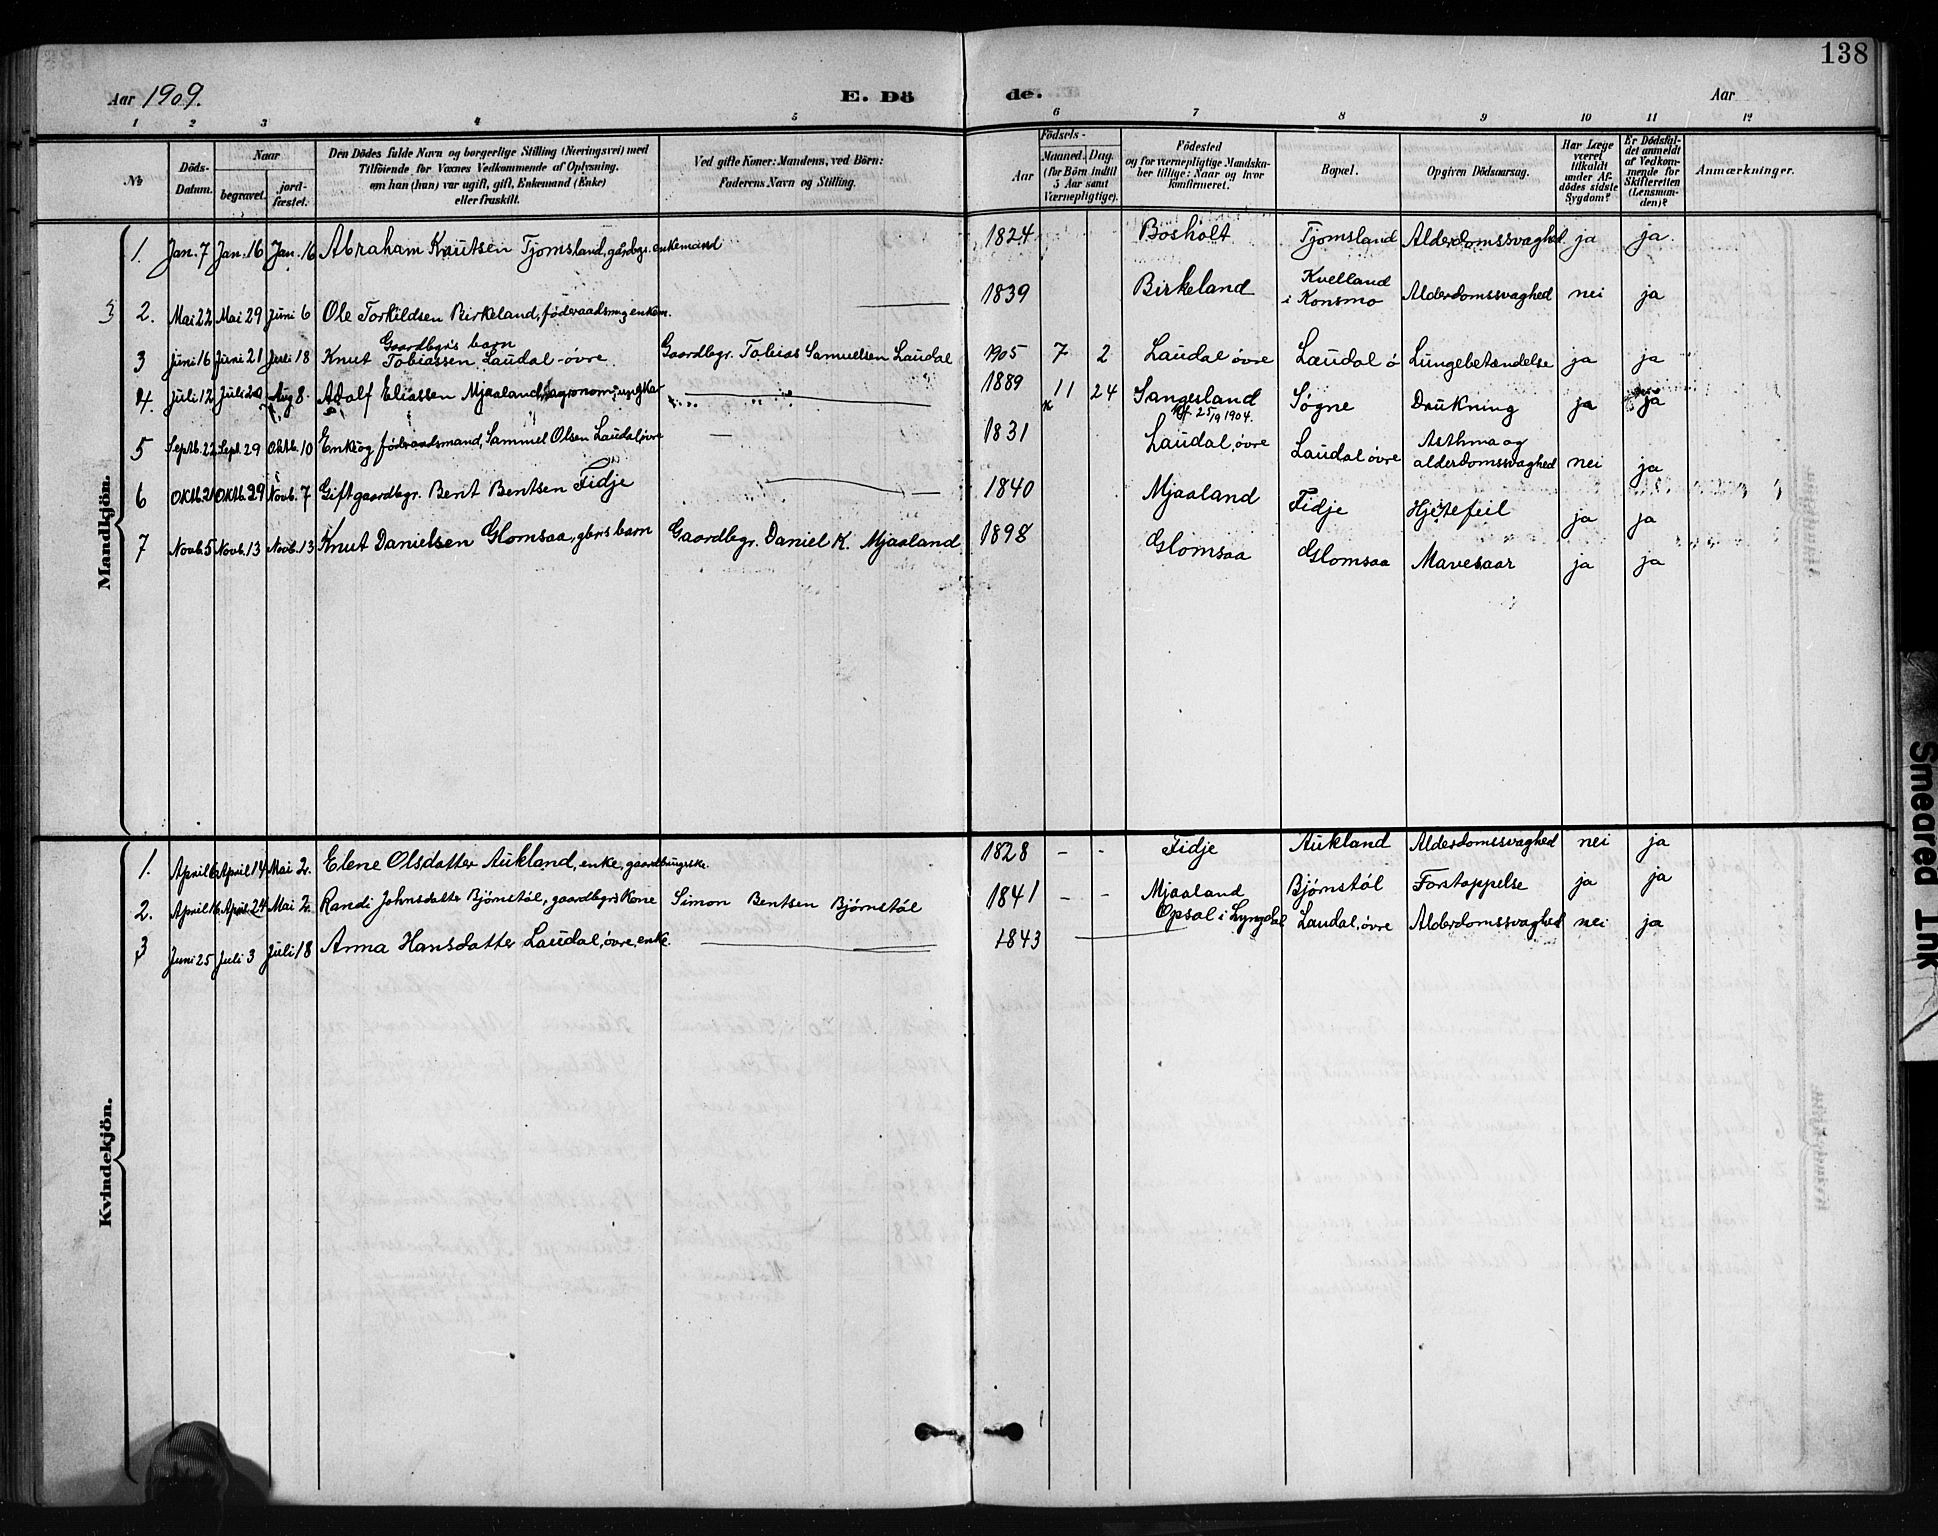 138
Aar 1909.
E. Dö de.
Aar
1 2 3 4 5 6 7 8 9 10 11 12
№
Döds-Datum.
Naar
begravet.
jord-fæstet.
Den Dödes fulde Navn og borgerlige Stilling (Næringsvei) med
Tilföiende for Voxnes Vedkommende af Oplysning,
om han (hun) var ugift, gift, Enkemand (Enke)
eller fraskilt.
Ved gifte Koner: Mandens, ved Börn:
Faderens Navn og Stilling.
Födsels-
Aar
Maaned. Dag.
(for Börn indtil
5 Aar samt
Værnepligtige).
Födested
og for værnepligtige Mandska-
ber tillige: Naar og hvor
konfirmeret.
Bopæl.
Opgiven Dödsaarsag.
Har Læge
været
tilkaldt
under Af-
dödes sidste
Sygdom?
Er Dödsfal-
det anmeldt
af Vedkom-
mende for
Skifteretten
(Lensman-
den)?
Anmærkninger.
Mandkjön.
1. Jan. 7 Jan. 16 Jan. 16 Abraham Knutsen Tjomsland, gårdbgr. enkemand 1824 Bosholt Tjomsland Alderdomssvaghed ja ja
3
2. Mai 22 Mai 29 Juni 6 Ole Torkildsen Birkeland, føderaadsm. enkem. 1839 Birkeland Kvelland i Konsmo Alderdomssvaghed nei ja
3 Juni 16 Juni 21 Juli 18 Gaardbgr's barn Knut Tobiassen Laudal øvre Gaardbgr. Tobias Samuelsen Laudal 1905 7 2 Laudal øvre Laudal ø Lungebetændelse ja ja
4. Juli 12 Juli 20 Aug 8. Adolf Eliassen Mjaaland, agronom, ungkar 1889 11 24 Sangesland Kf. 25/9 1904. Søgne Drukning ja ja
5 Septb. 22 Sept. 29 Oktb. 10 Enke og føderaadsmand, Sammel Olsen Laudal øvre — 1831 Laudal, øvre Laudal øvre Asthma og alderdomssvaghed nei ja
6 Oktb. 21 Oktb. 29 Novb. 7 Gift gaardbgr. Berit Bentsen Fidje — 1840 Mjaaland Fidje Hjertefeil ja ja
7 Novb. 5 Novb. 13 Novb. 13 Knut Danielsen Glomsaa, gbrs barn Gaardbgr. Daniel K. Mjaaland 1898 Glomsaa Glomsaa Mavesaar ja ja
Kvindekjön.
1. April 6 April 14 Mai 2. Elene Olsdatter Aukland, enke, 1828 - - Fidje Aukland Alderdomssvaghed nei ja
2. April 16 April 24 Mai 2. Randi Johnsdatter Bjørnstøl, gaardbgrs Kone Simon Bentsen Bjørnstøl 1841 - - Mjaaland Bjørnstøl Forstoppelse ja ja
3 Juni 25 Juli 3 Juli 18 Anna Hansdatter Laudal, øvre, enke. 1843 Opsal i Lyngdal Laudal, øvre Alderdomssvaghed nei ja
Smeared Ink